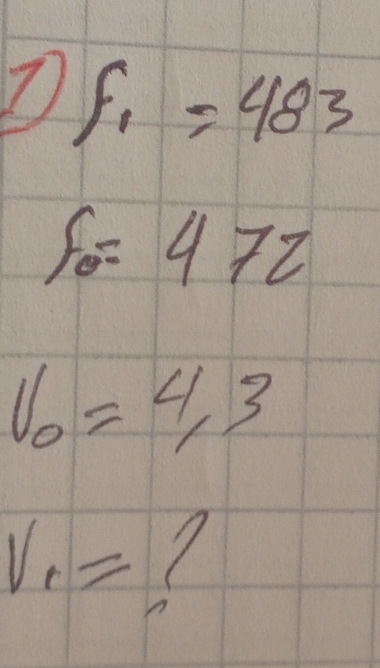 1) f₁ = 483
f₀ = 472
V₀ = 4,3
V₁ = ?